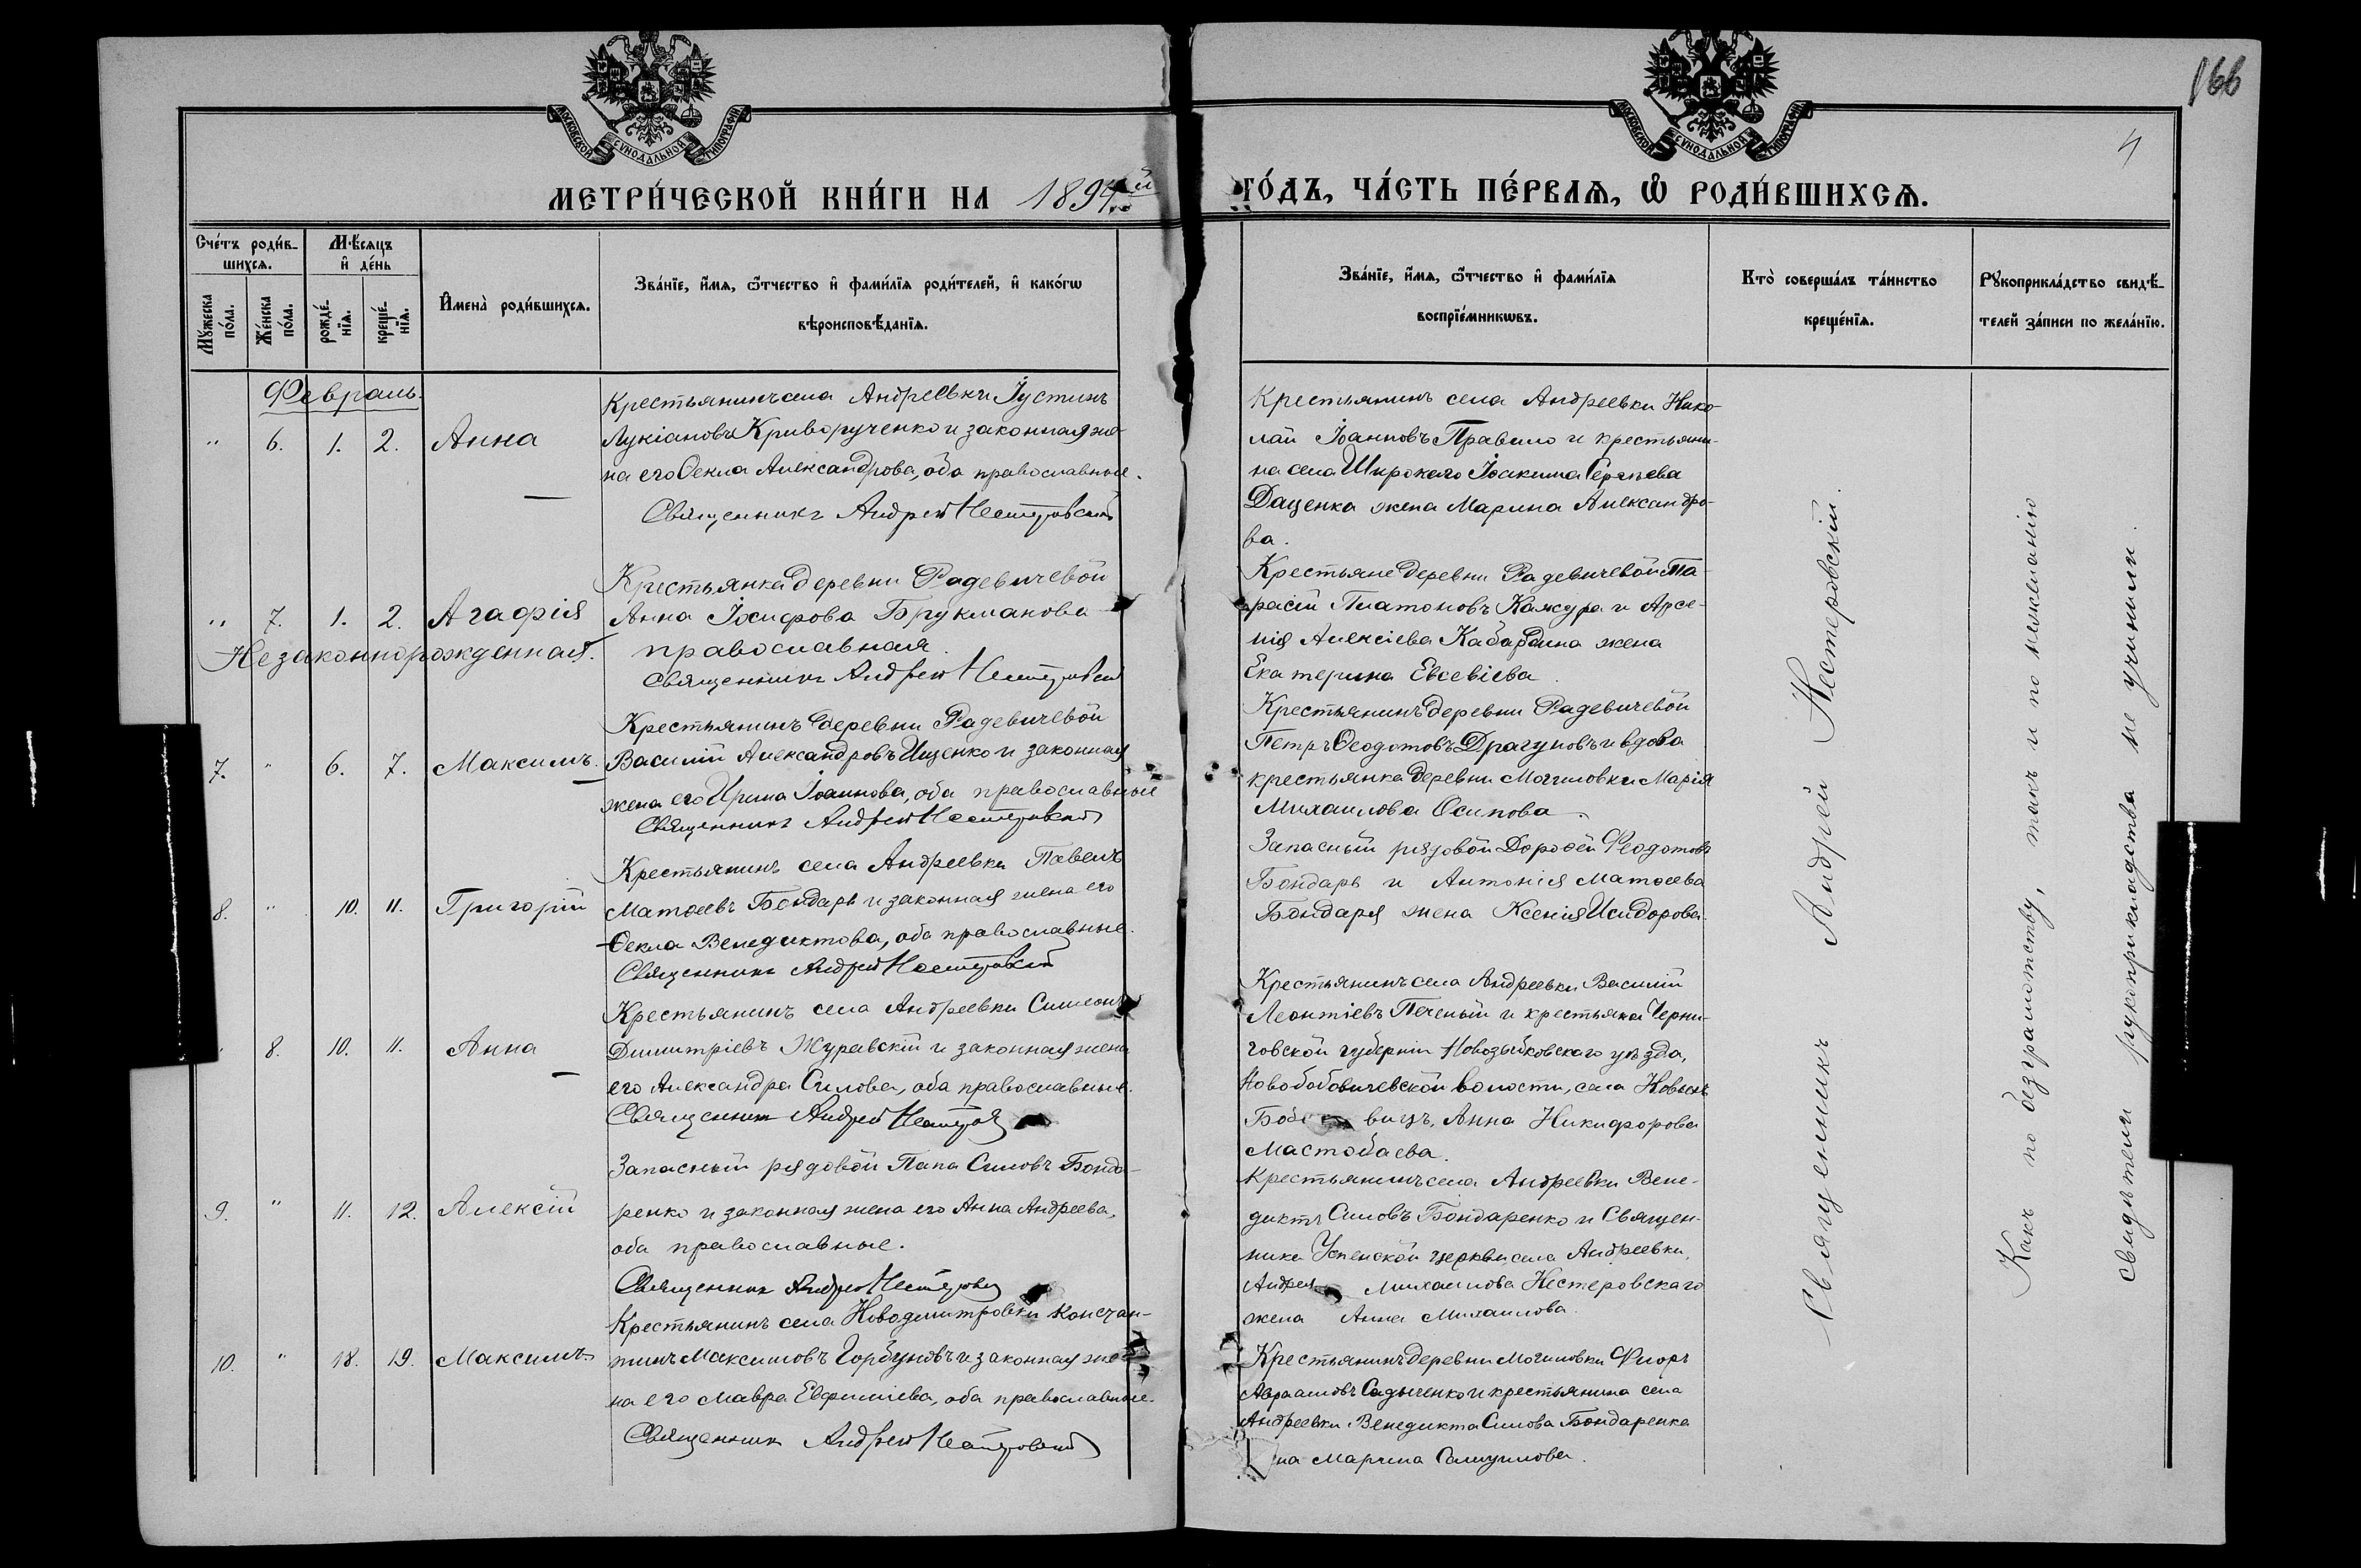 166
4
МОСКОВСКОЙ СѴНОДАЛЬНОЙ ТИПОГРАФІИ
МОСКОВСКОЙ СѴНОДАЛЬНОЙ ТИПОГРАФІИ
МЕТРИ́ЧЕСКОЙ КНИ́ГИ НА 1894.й
ГО́ДЪ, ЧА́СТЬ ПЕ́РВАѦ, Ѡ҆ РОДИ́ВШИХСѦ.
Сче́тъ роди́в-
шихсѧ.
Мꙋ́жеска по́ла.
Же́нска по́ла.
Мѣ́сѧцъ
и҆ де́нь
рожде́-
нїѧ.
креще́-
нїѧ.
И҆мена̀ роди́вшихсѧ.
Зва́нїе, и҆́мѧ, ѻ҆́тчество и҆ фами́лїѧ роди́телей, и҆ како́гѡ
вѣроисповѣ́данїѧ.
Зва́нїе, и҆́мѧ, ѻ҆́тчество и҆ фами́лїѧ
воспрїе́мникѡвъ.
Кто̀ соверша́лъ та́инство
креще́нїѧ.
Рꙋкоприкла́дство свидѣ́-
телей за́писи по жела́нїю.
Февраль.
" 6. 1. 2. Анна
Крестьянинъ села Андреевки Іустинъ
Лукіановъ Криворученко и законная же-
на его Ѳекла Александрова, оба православные.
Священникъ Андрей Нестеровский
Крестьянинъ села Андреевки Нико-
лай Іоанновъ Правило и крестьяни-
на села Широкаго Іоакима Сергѣева
Даценка жена Марина Александро-
ва.
" 7. 1. 2. Агафія
Незаконнорожденная.
Крестьянка деревни Радевичевой
Анна Іосифова Брукманова
православная.
Священникъ Андрей Нестеровский
Крестьяне деревни Радевичевой Та-
расій Платоновъ Кажура и Арсе-
нія Алексіева Кабардина жена
Екатерина Евсевіева.
7. " 6. 7. Максимъ.
Крестьянинъ деревни Радевичевой
Василій Александровъ Ищенко и законная
жена его Ирина Іоаннова, оба православные
Священникъ Андрей Нестеровский
Крестьянинъ деревни Радевичевой
Петръ Ѳеодотовъ Драгуновъ и вдова
крестьянка деревни Могиловки Марія
Михаилова Осипова.
8. " 10. 11. Григорій
Крестьянинъ села Андреевки Павелъ
Матѳеевъ Бондарь и законная жена его
Ѳекла Венедиктова, оба православные.
Священникъ Андрей Нестеровский
Запасный рядовой Дороѳей Ѳеодотовъ
Бондарь и Антонія Матѳеева
Бондаря жена Ксенія Исидорова.
" 8. 10. 11. Анна
Крестьянинъ села Андреевки Симеонъ
Димитріевъ Журавскій и законная жена
его Александра Силова, оба православные.
Священникъ Андрей
Крестьянинъ села Андреевки Василій
Леонтіевъ Печеный и крестьянка Черни-
говской губерніи Новозыбковского уѣзда,
Новобобовичевской волости, села Новыхъ
Боб вичъ, Анна Никифорова
Мастобаева.
9. " 11. 12. Алексій
Запасный рядовой Папа Силовъ Бонда-
ренко и законная жена его Анна Андреева,
оба православные.
Священникъ Андрей
Крестьянинъ села Андреевки Вене-
диктъ Силовъ Бондаренко и Священ-
ника Успенской церкви села Андреевки,
Андрея Михаилова Нестеровскаго
жена Анна Михаилова.
10. " 18. 19. Максимъ
Крестьянинъ села Новодмитровки Констан-
тинъ Максимовъ Горбуновъ и законная же-
на его Мавра Евфиміева, оба православные.
Священникъ Андрей Нестеровский
Крестьянинъ деревни Могиловки Флоръ
Авраамовъ Садыченко и крестьянина села
Андреевки Венедикта Силова Бондаренка
на Марина Самуилова.
Священникъ Андрей Нестеровскій.
Какъ по безграмотству, такъ и по нежеланію
свидѣтели рукоприкладства не учинили.